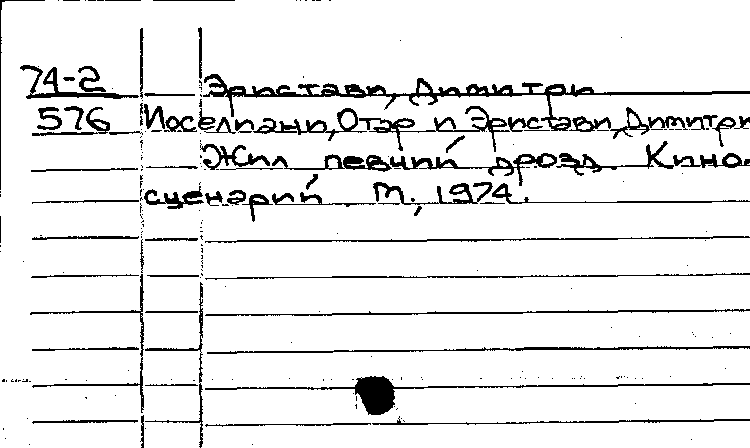 74-2 Эристави, Димитри
576 Иоселиани, Отар и Эристави, Димитри
Жил певчий дрозд. Кино-
сценарий. М., 1974.